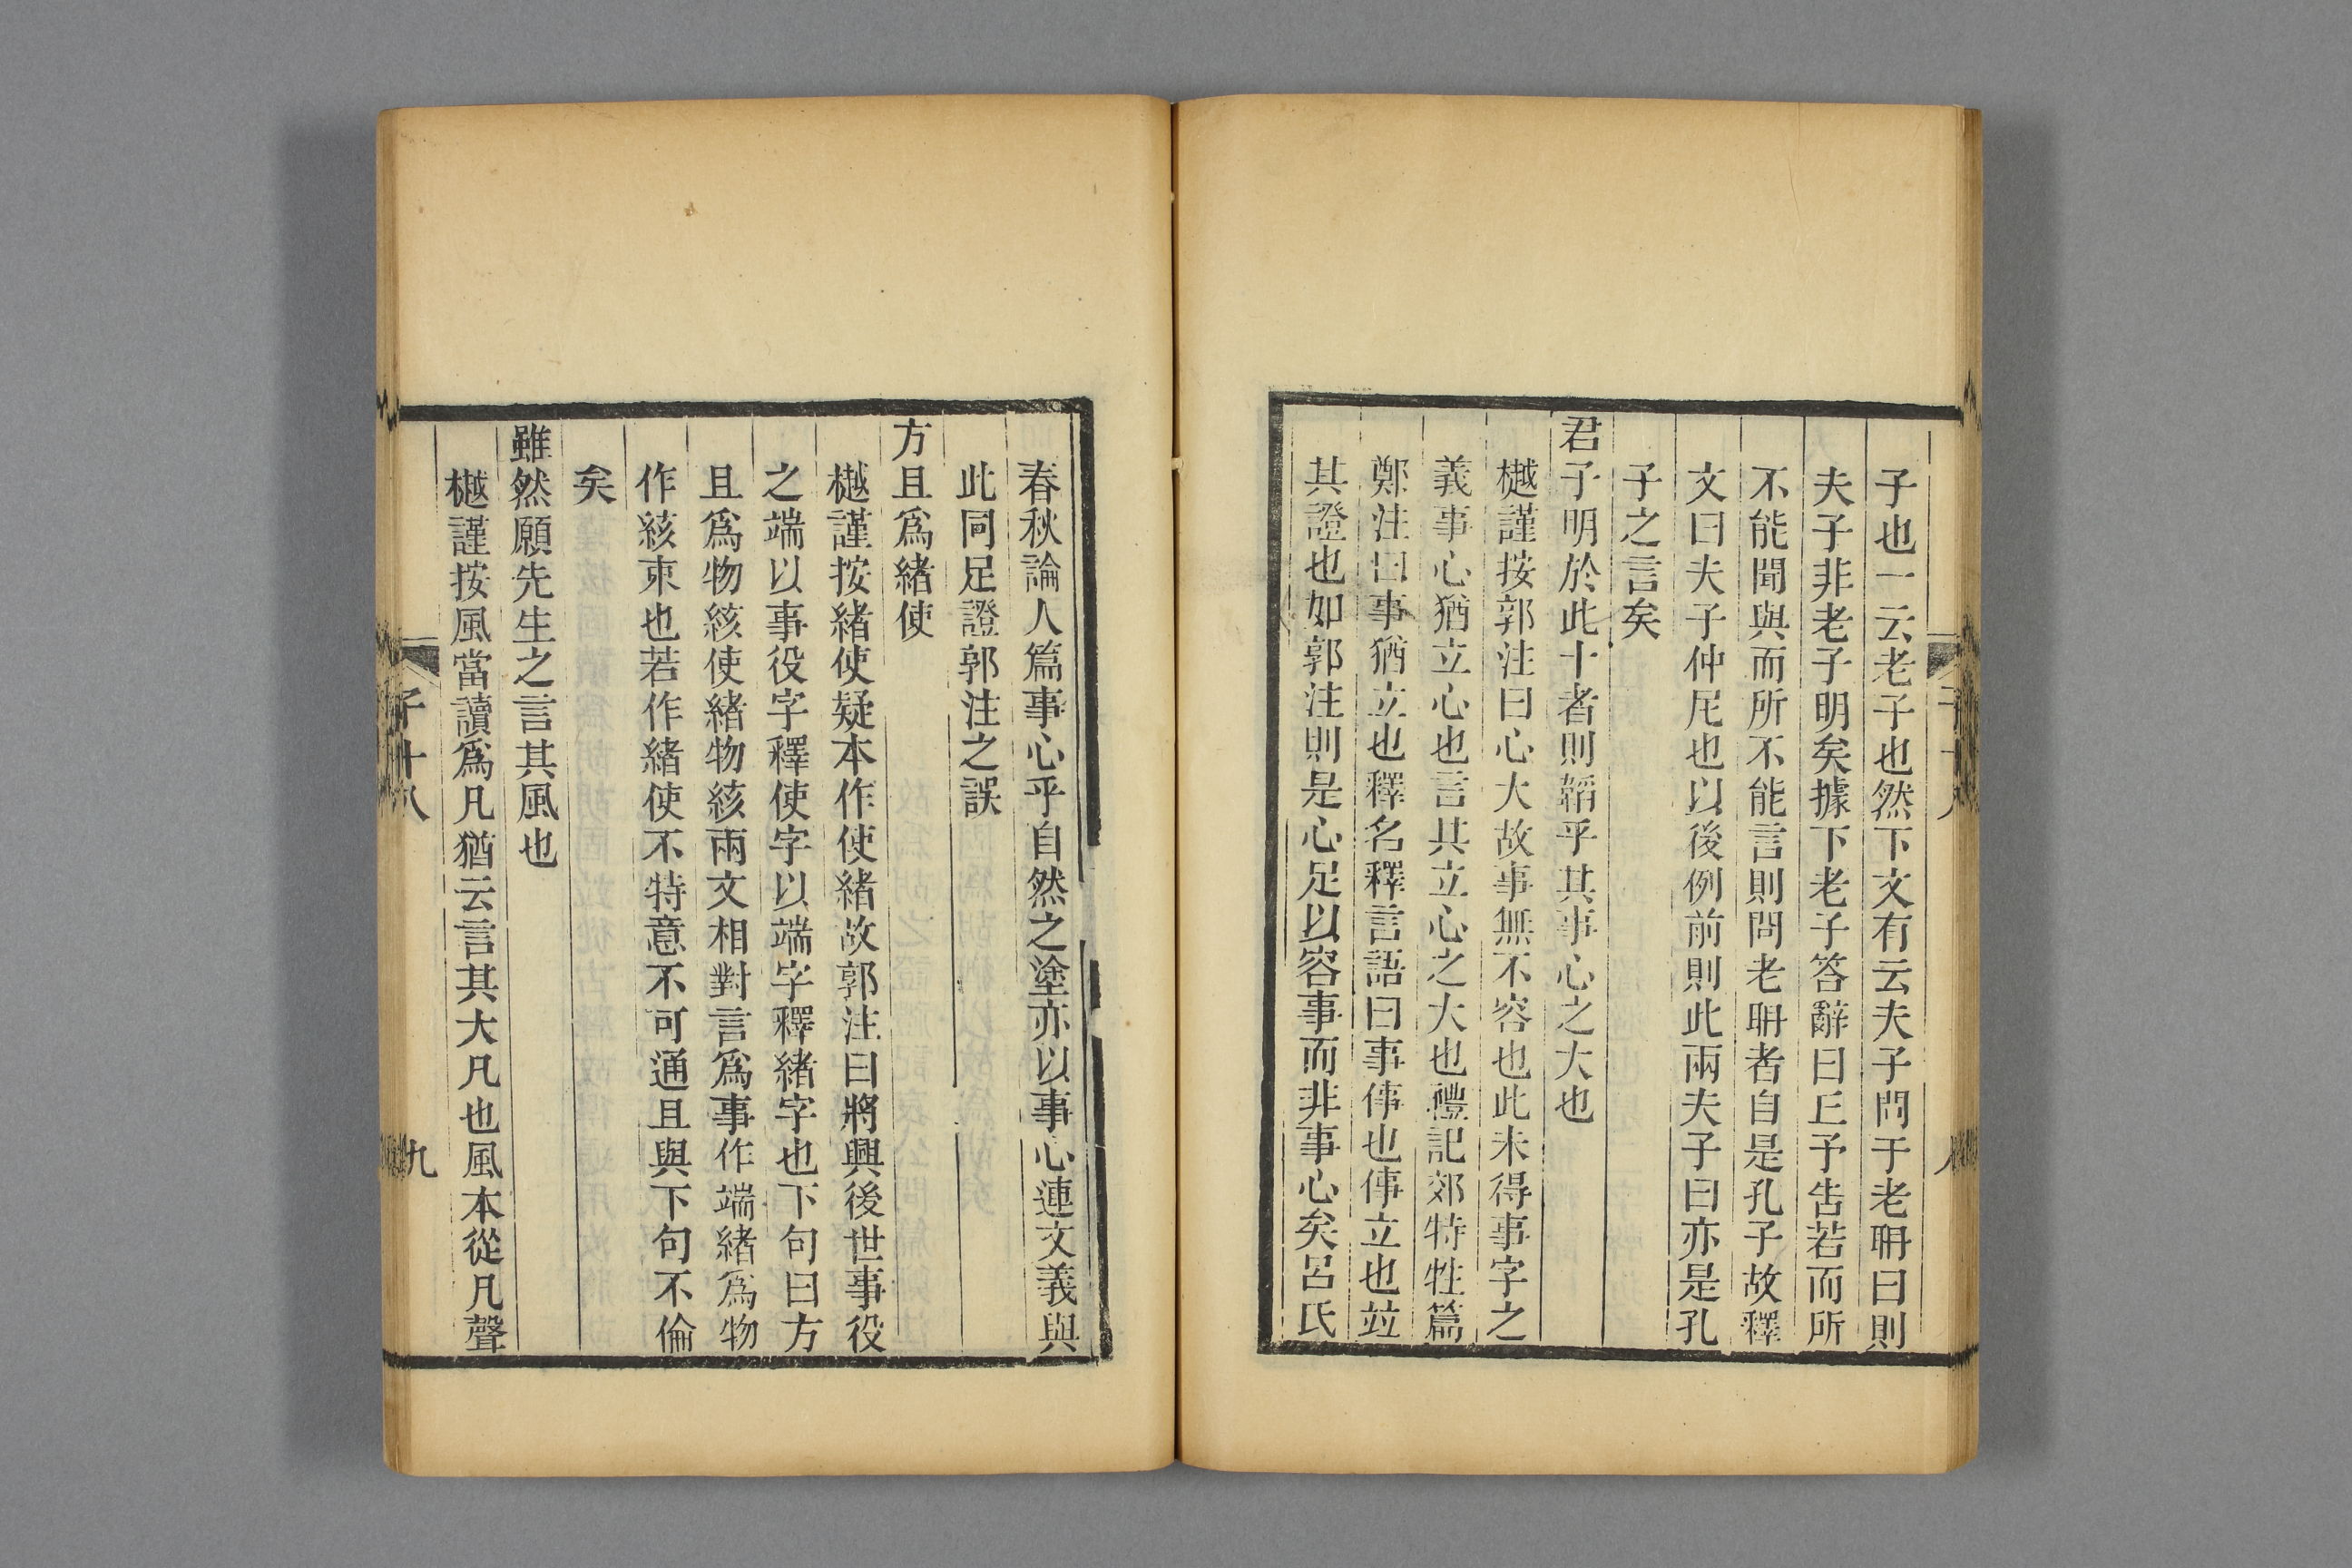 子也一云老子也然下文有云夫子問于老聃曰則
夫子非老子明矣據下老子答辭曰丘予告若而所
不能聞與而所不能言則問老聃者自是孔子故釋
文曰夫子仲尼也以後例前則此兩夫子曰亦是孔
子之言矣
君子明於此十者則韜乎其事心之大也
樾謹按郭注曰心大故事無不容也此未得事字之
義事心猶立心也言其立心之大也禮記郊特牲篇
鄭注曰事猶立也釋名釋言語曰事倳也倳立也竝
其證也如郭注則是心足以容事而非事心矣呂氏
春秋論人篇事心乎自然之塗亦以事心連文義與
此同足證郭注之誤
方且爲緒使
樾謹按緒使疑本作使緒故郭注曰將興後世事役
之端以事役字釋使字以端字釋緒字也下句曰方
且爲物絯使緒物絯兩文相對言爲事作端緒爲物
作絯束也若作緒使不特意不可通且與下句不倫
矣
雖然願先生之言其風也
樾謹按風當讀爲凡猶云言其大凡也風本從凡聲
子十八
九